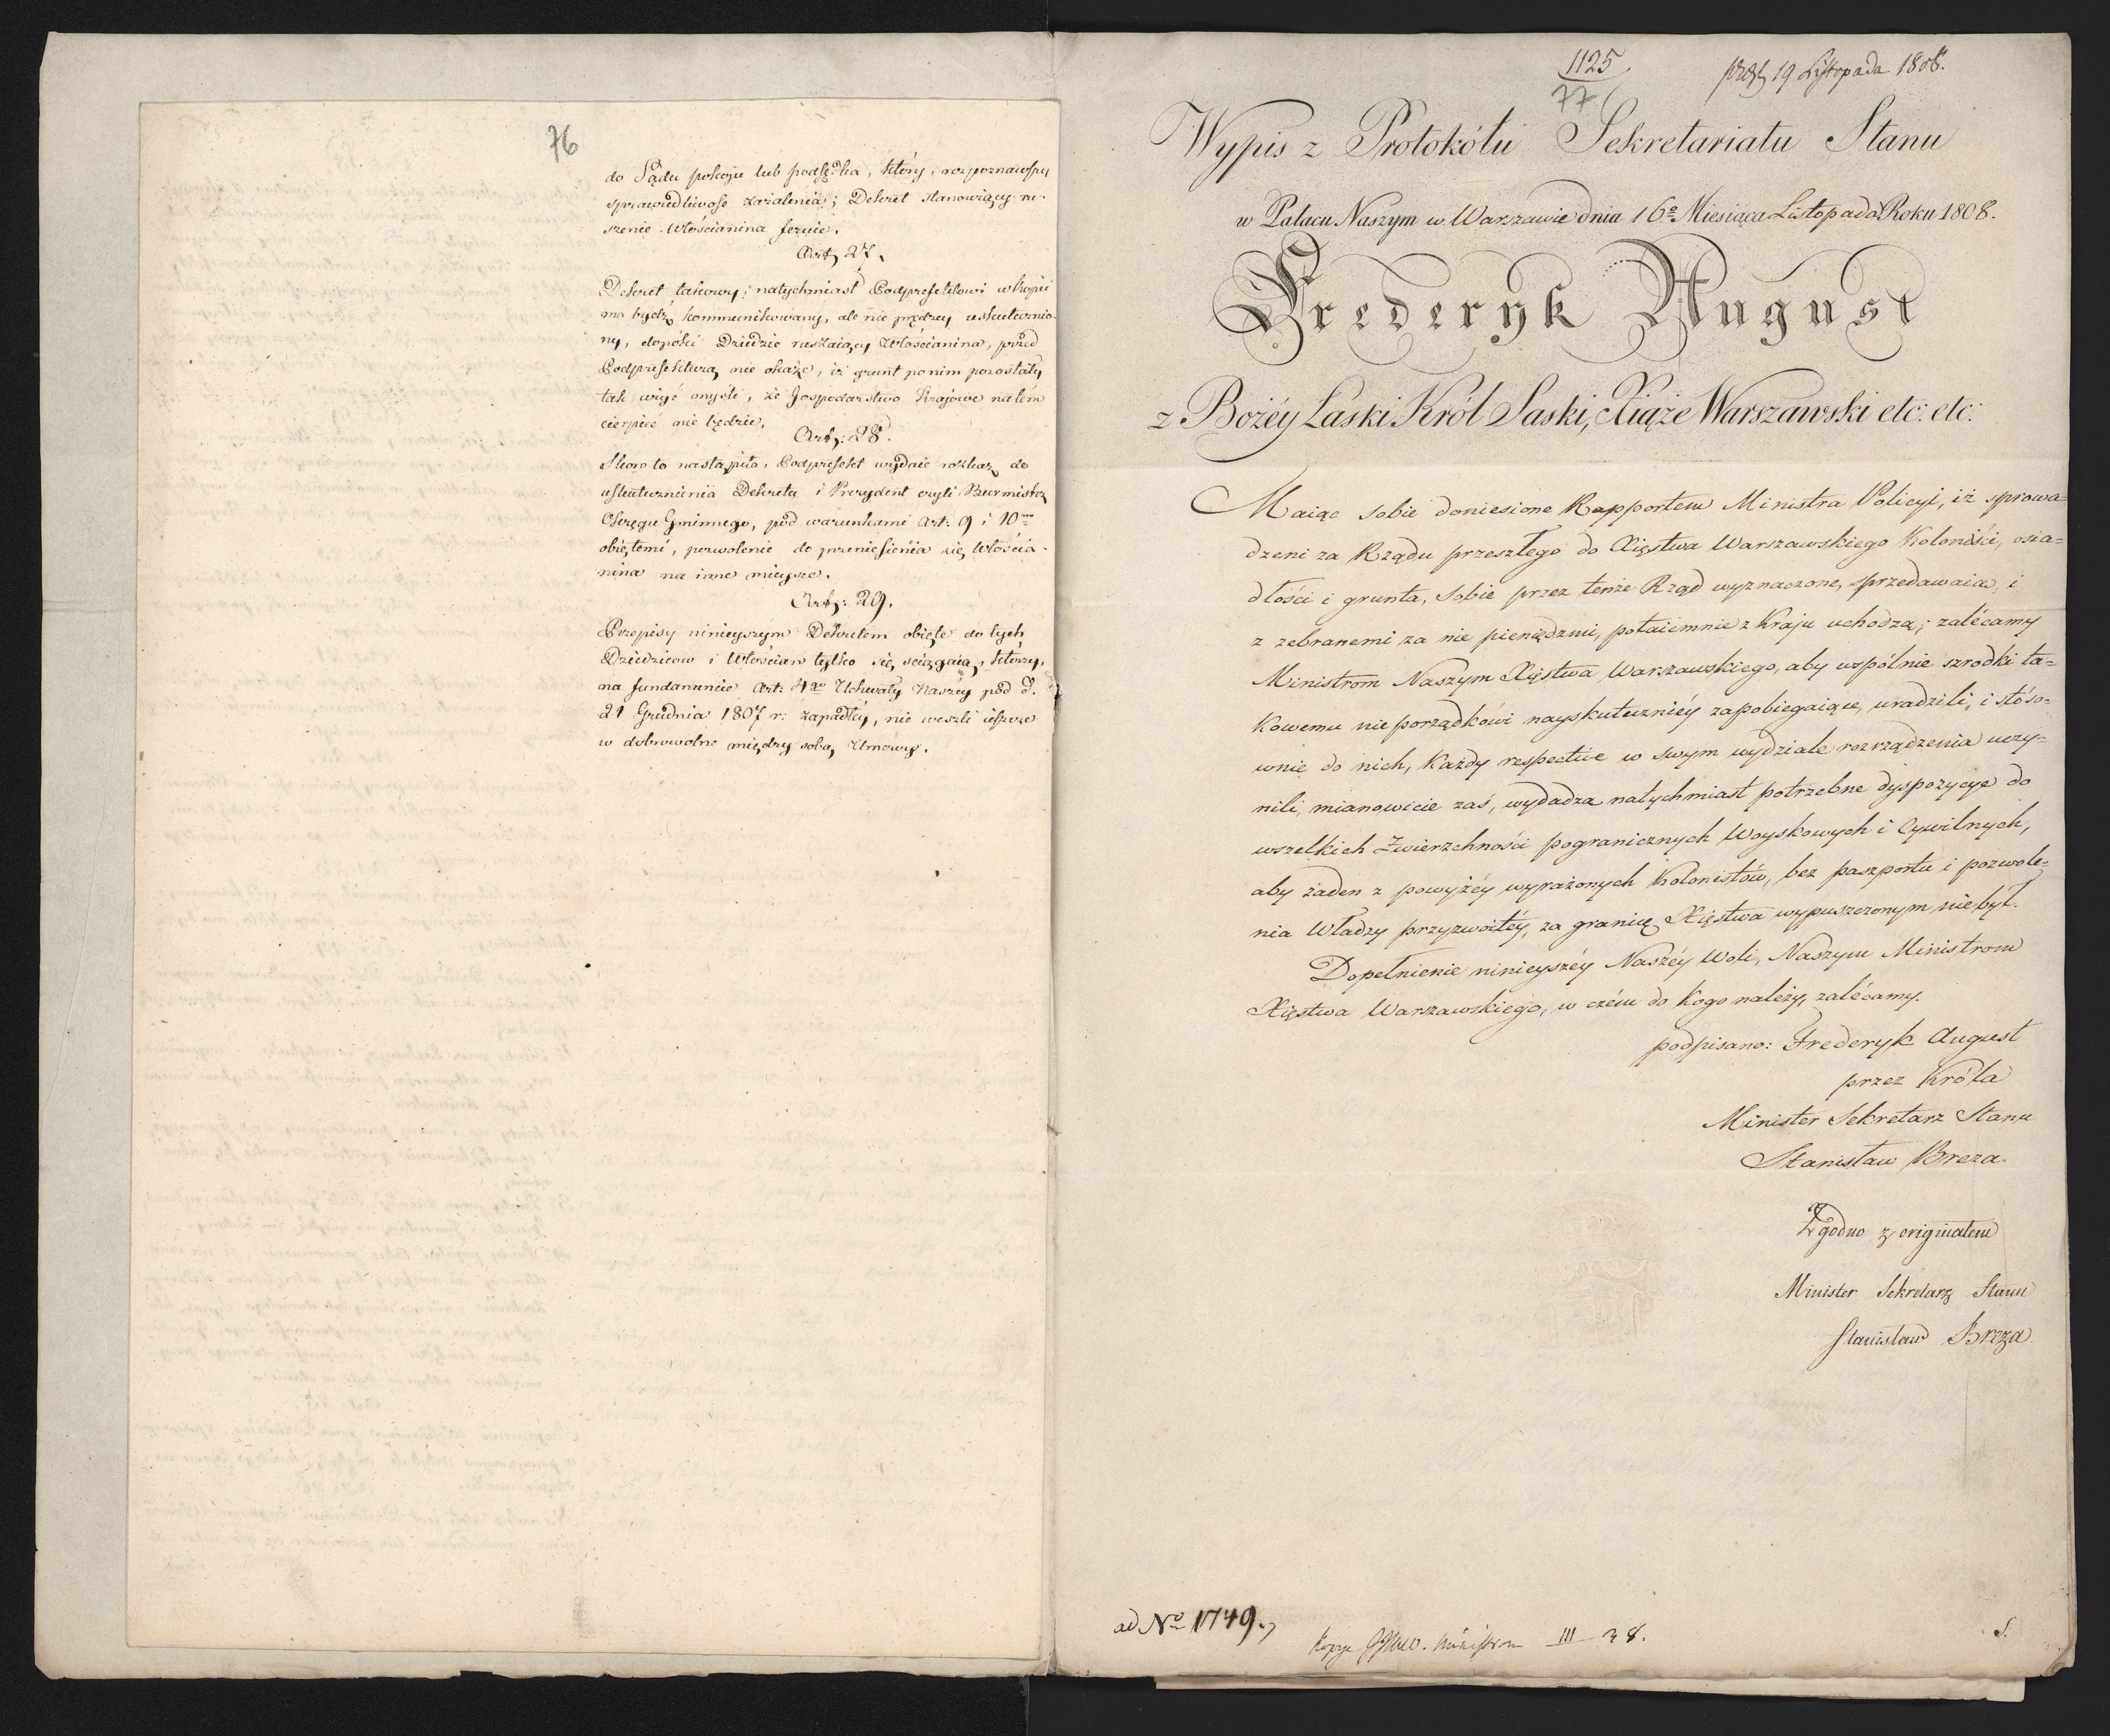 76
do Sądu pokoju lub podsędka, który, rozpoznawszy
sprawiedliwość zażalenia; Dekret stanowiący ru-
szenie Włościanina feruie.
Art: 27.
Dekret takowy; natychmiast Podprefektowi w kopii
ma bydź kommunikowany, ale nie prędzey uskutecznio-
ny, dopóki Dziedzic ruszaiący Włościanina, przed
Podprefekturą nie okaże, iż grunt po nim pozostały
tak wziąć myśli, że Gospodarstwo Krajowe na tém
cierpieć nie będzie.
Art: 28.
Skoro to nastąpiło, Podprefekt wydaie rozkaz do
uskutecznienia Dekretu i Prezydent czyli Burmistrz
Okręgu Gminnego, pod warunkami Art: 9 i 10mo
obiętemi, pozwolenie do przeniesienia się Włościa-
nina na inne mieysce.
Art: 29.
Przepisy ninieyszym Dekretem obięte do tych
Dziedziców i Włościan tylko się ściągaią, którzy,
na fundamencie Art: 4go Uchwały Naszéy pod d.
21 Grudnia 1807 r: zapadłéy, nie weszli ieszcze
w dobrowolne między sobą Umowy.
1125
77
przt 19 Listopada 1808.
Wypis z Protokółu Sekretariatu Stanu
w Pałacu Naszym w Warszawie dnia 16o Miesiąca Listopada Roku 1808.
Frederyk August
z Bożéy Łaski Król Saski, Xiąże Warszawski etc: etc:
Maiąc sobie doniesione Rapportem Ministra Policyi, iż sprowa=
dzeni za Rządu przeszłego do Xięstwa Warszawskiego Koloniści, osia=
dłości i grunta, sobie przez tenże Rząd wyznaczone, sprzedawaią, i
z zebranemi za nie pieniędzmi, potaiemnie z Kraju uchodzą; zalécamy
Ministrom Naszym Xięstwa Warszawskiego, aby wspólnie szrodki ta=
kowemu nieporządkowi nayskuteczniéy zapobiegaiące, uradzili, i stóso=
wnie do nich, Każdy respective w swym wydziale rozrządzenia uczy=
nili, mianowicie zaś, wydadzą natychmiast potrzebne dyspozycye do
wszelkich Zwierzchności pogranicznych Woyskowych i Cywilnych,
aby żaden z powyżéy wyrażonych Kolonistów, bez paszportu i pozwole=
nia Władzy przyzwoitéy, za granicę Xięstwa wypuszczonym nie był.
Dopełnienie ninieyszéy Naszéy Woli, Naszym Ministrom
Xięstwa Warszawskiego, w czém do Kogo należy, zalécamy.
podpisano: Frederyk August
przez Króla
Minister Sekretarz Stanu
Stanisław Breza.
Zgodno z originałem
Minister Sekretarz Stanu
Stanisław Breza
ad No 1749.
III 38.
S.